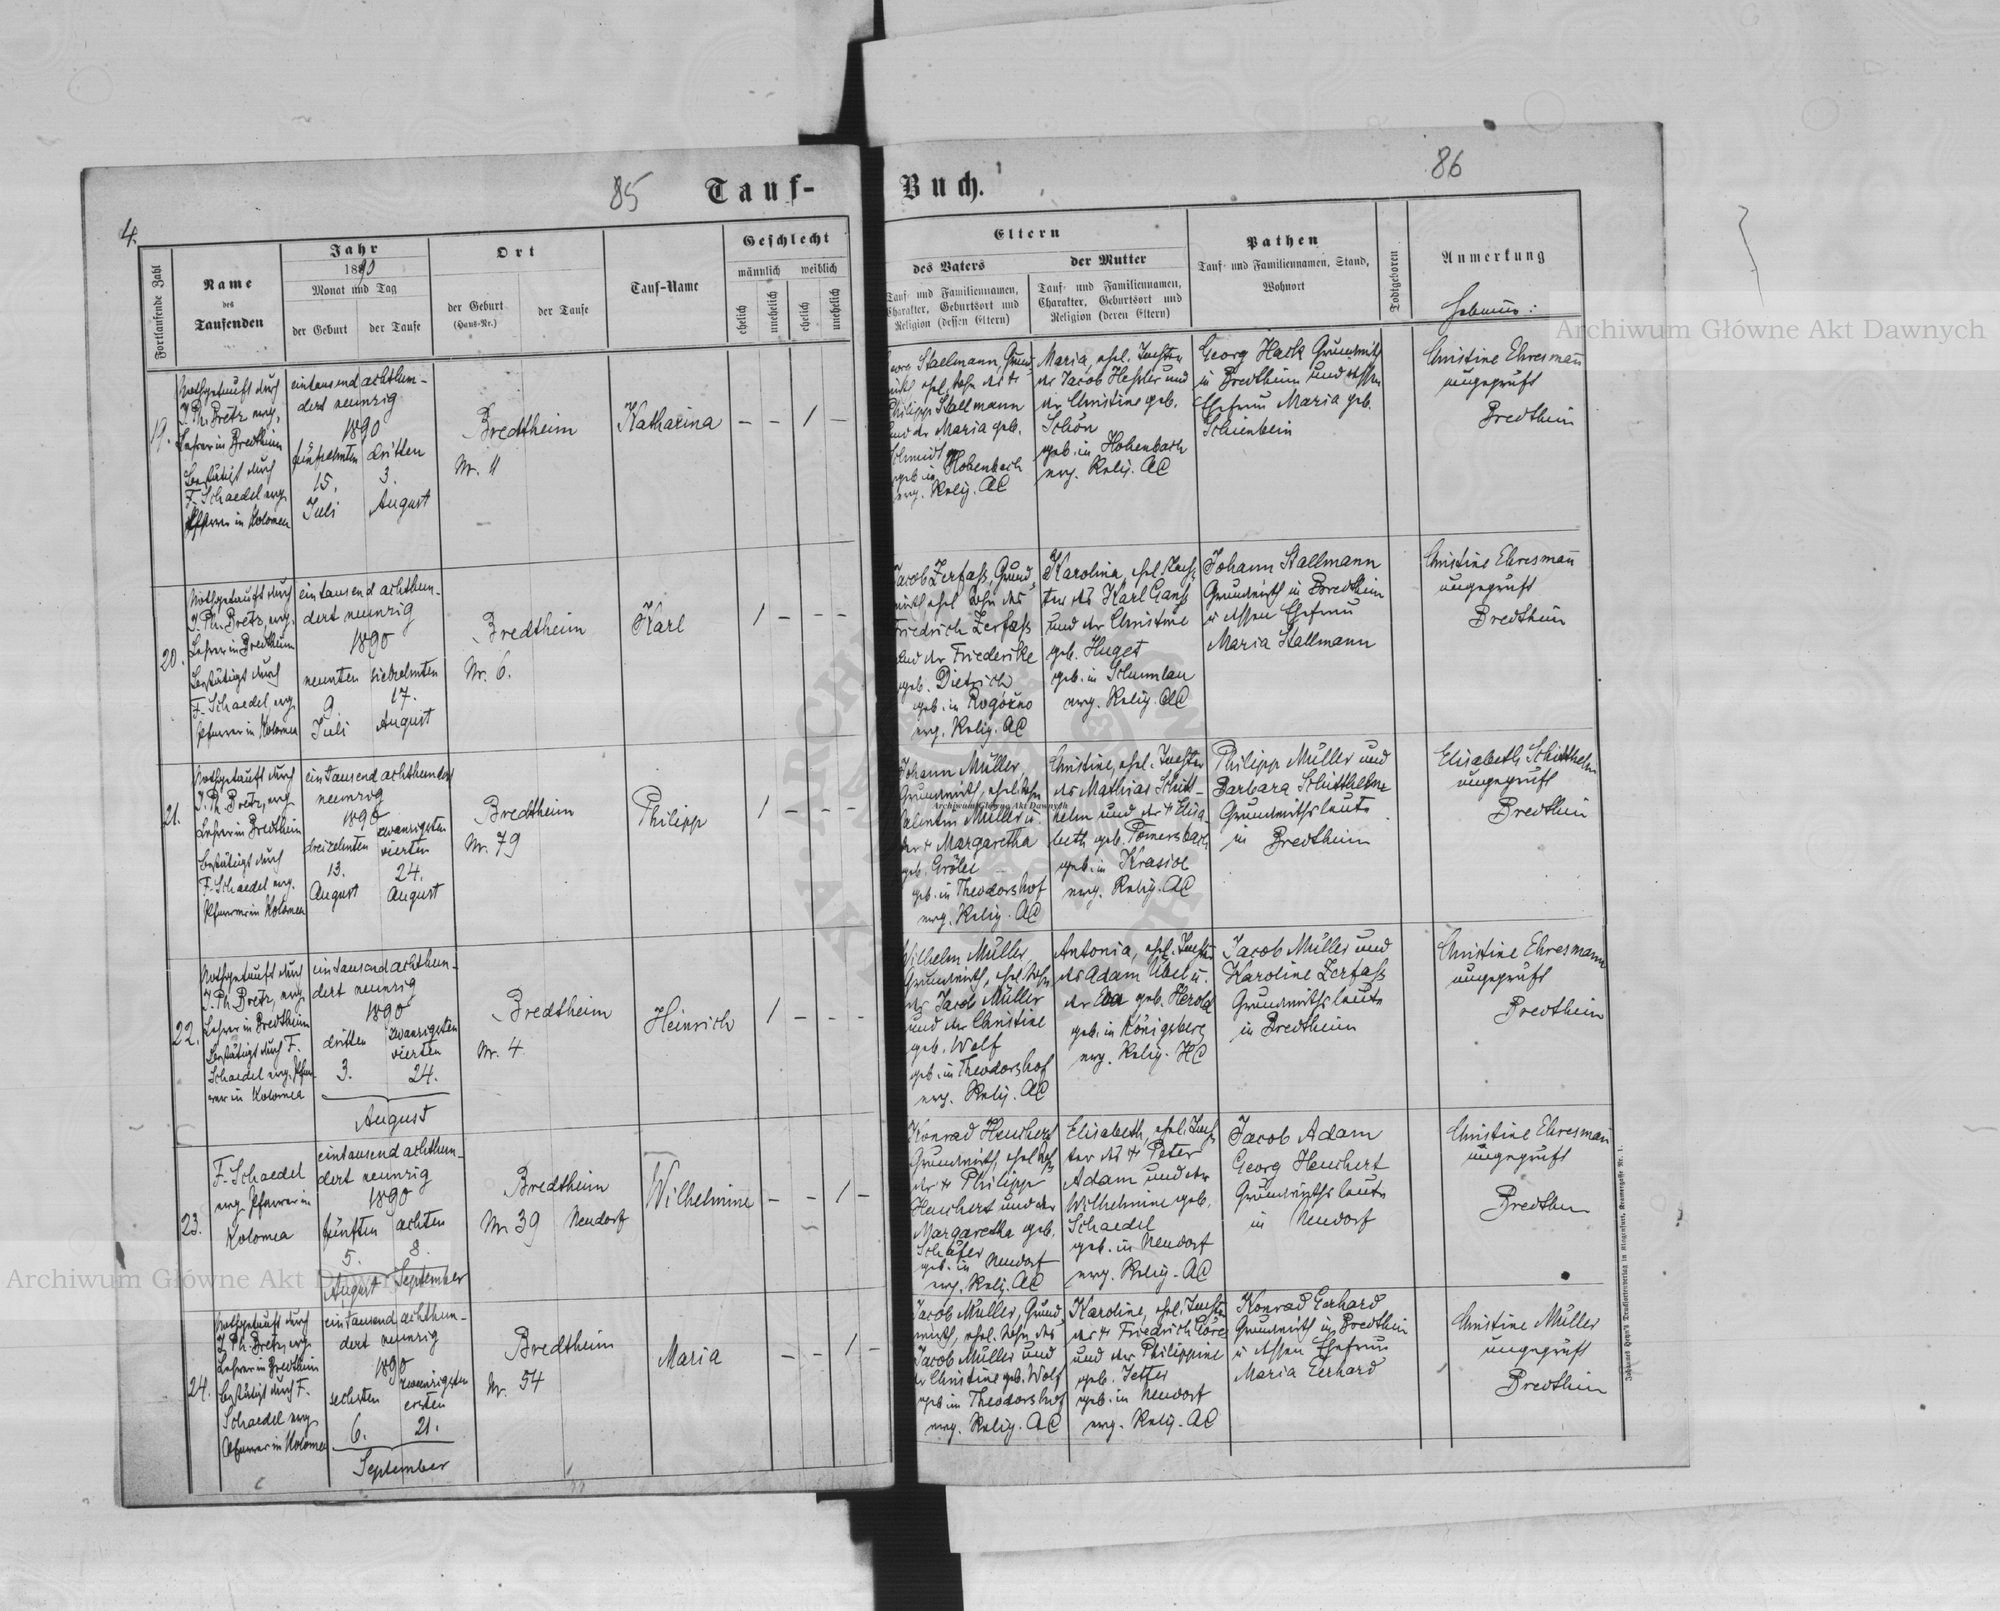 85
Tauf-
Buch.
86
4.
Fortlaufende Zahl
Name
des
Taufenden
Jahr
1890
Monat und Tag
der Geburt
der Taufe
Ort
der Geburt
(Haus-Nr.)
der Taufe
Tauf-Name
Geschlecht
männlich
weiblich
ehelich
unehelich
ehelich
unehelich
Eltern
des Vaters
Tauf- und Familiennamen,
Charakter, Geburtsort und
Religion (dessen Eltern)
der Mutter
Tauf- und Familiennamen,
Charakter, Geburtsort und
Religion (deren Eltern)
Pathen
Tauf- und Familiennamen, Stand,
Wohnort
Todtgeboren
Anmerkung
19.
Nothgetauft durch
J. Ph. Bretz, evg.
Lehrer in Bredtheim
Bestätigt durch
F. Schaedel evg.
Pfarrer in Kolomea
eintausend achthun-
dert neunzig
1890
fünfzehnten
15.
Juli
dritten
3.
August
Bredtheim
Nr. 11
Katharina
- - 1 -
Stallmann, Grund-
ehel. Sohn des †
Philipp Stallmann
und der Maria geb.
Schmidt
geb. in Hohenbach
evg. Relig. AC
Maria, ehel. Tochter
des Jacob Hessler und
der Christine geb.
Schön
geb. in Hohenbach
evg. Relig. AC
Georg Hack Grundwirth
in Bredtheim und dessen
Ehefrau Maria geb.
Schienbein
Christine Ehresmann
ungeprüft
Bredtheim
20.
Nothgetauft durch
J. Ph. Bretz, evg.
Lehrer in Bredtheim
Bestätigt durch
F. Schaedel, evg.
Pfarrer in Kolomea
eintausend achthun-
dert neunzig
1890
neunten
9.
Juli
siebzehnten
17.
August
Bredtheim
Nr. 6.
Karl
1 - - -
Jacob Zerfass, Grund-
wirth, ehel. Sohn des
Friedrich Zerfass
und der Friederike
geb. Dietrich
geb. in Rogóżno
evg. Relig. AC
Karolina, ehel. Toch-
ter des Karl Gans
und der Christine
geb. Huget
geb. in Schumlau
evg. Relig. AC
Johann Stallmann
Grundwirth in Bredtheim
u dessen Ehefrau
Maria Stallmann
Christine Ehresmann
ungeprüft
Bredtheim
21.
Nothgetauft durch
J. Ph. Bretz, evg.
Lehrer in Bredtheim
Bestätigt durch
F. Schaedel evg.
Pfarrer in Kolomea
eintausend achthundert
neunzig
1890
dreizehnten
13.
August
zwanzigsten
vierten
24.
August
Bredtheim
Nr. 79
Philipp
1 - - -
Johann Müller,
Grundwirth, ehel. Sohn
Valentin Müller u.
der † Margaretha
geb.
geb. in Theodorshof
evg. Relig. AC
Christine, ehel. Tochter
des Mathias Schütt-
helm und der † Elisa-
beth geb. Pomersbach
geb. in Krasice
evg. Relig. AC
Philipp Müller und
Barbara Schütthelm
Grundwirthsleute
in Bredtheim
Elisabeth Schütthelm
ungeprüft
Bredtheim
22.
Nothgetauft durch
J. Ph. Bretz, evg.
Lehrer in Bredtheim
Bestätigt durch F.
Schaedel evg. Pfar-
rer in Kolomea
eintausend achthun-
dert neunzig
1890
dritten
3.
zwanzigsten
vierten
24.
August
Bredtheim
Nr. 4
Heinrich
1 - - -
Wilhelm Müller,
Grundwirth, ehel. Sohn
des Jacob Müller
und der Christine
geb. Wolf
geb. in Theodorshof
evg. Relig. AC
Antonia, ehel. Tochter
des Adam Übel u.
der Eva geb. Herold
geb. in Königsberg
evg. Relig. HC
Jacob Müller und
Karoline Zerfass
Grundwirthsleute
in Bredtheim
Christine Ehresmann
ungeprüft
Bredtheim
23.
F. Schaedel
evg. Pfarrer in
Kolomea
eintausend achthun-
dert neunzig
1890
fünften
5.
August
achten
8.
September
Bredtheim
Nr 39
Neudorf
Wilhelmine
- - 1 -
Konrad Heuchert
Grundwirth, ehel. Sohn
des † Philipp
Heuchert und der
Margaretha geb.
Schäfer
geb. in Neudorf
evg. Relig. AC
Elisabeth, ehel. Toch-
ter des † Peter
Adam und der
Wilhelmine geb.
Schaedel
geb. in Neudorf
evg. Relig. AC
Jacob Adam
Georg Heuchert
Grundwirthsleute
in Neudorf
Christine Ehresmann
ungeprüft
Bredtheim
24.
Nothgetauft durch
J. Ph. Bretz, evg.
Lehrer in Bredtheim
Bestätigt durch F.
Schaedel evg.
Pfarrer in Kolomea
eintausend achthun-
dert neunzig
1890
sechsten
6.
zwanzigsten
ersten
21.
September
Bredtheim
Nr. 54
Maria
- - 1 -
Jacob Müller, Grund-
wirth, ehel. Sohn des
Jacob Müller und
der Christine geb. Wolf
geb. in Theodorshof
evg. Relig. AC
Karoline, ehel. Tochter
des † Friedrich
und der Philippine
geb. Jetter
geb. in Neudorf
evg. Relig. AC
Konrad Gerhard
Grundwirth in Bredtheim
u dessen Ehefrau
Maria Gerhard
Christine Müller
ungeprüft
Bredtheim
Archiwum Główne Akt Dawnych
Archiwum Główne Akt Dawnych
Archiwum Główne Akt Dawnych